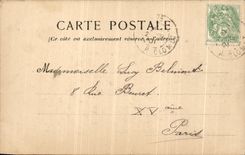 CARTE POSTALE
Ce côté est exclusivement réservé à l'adresse
Mademoiselle Lucy Belmont
8 Rue
XV ème
Paris